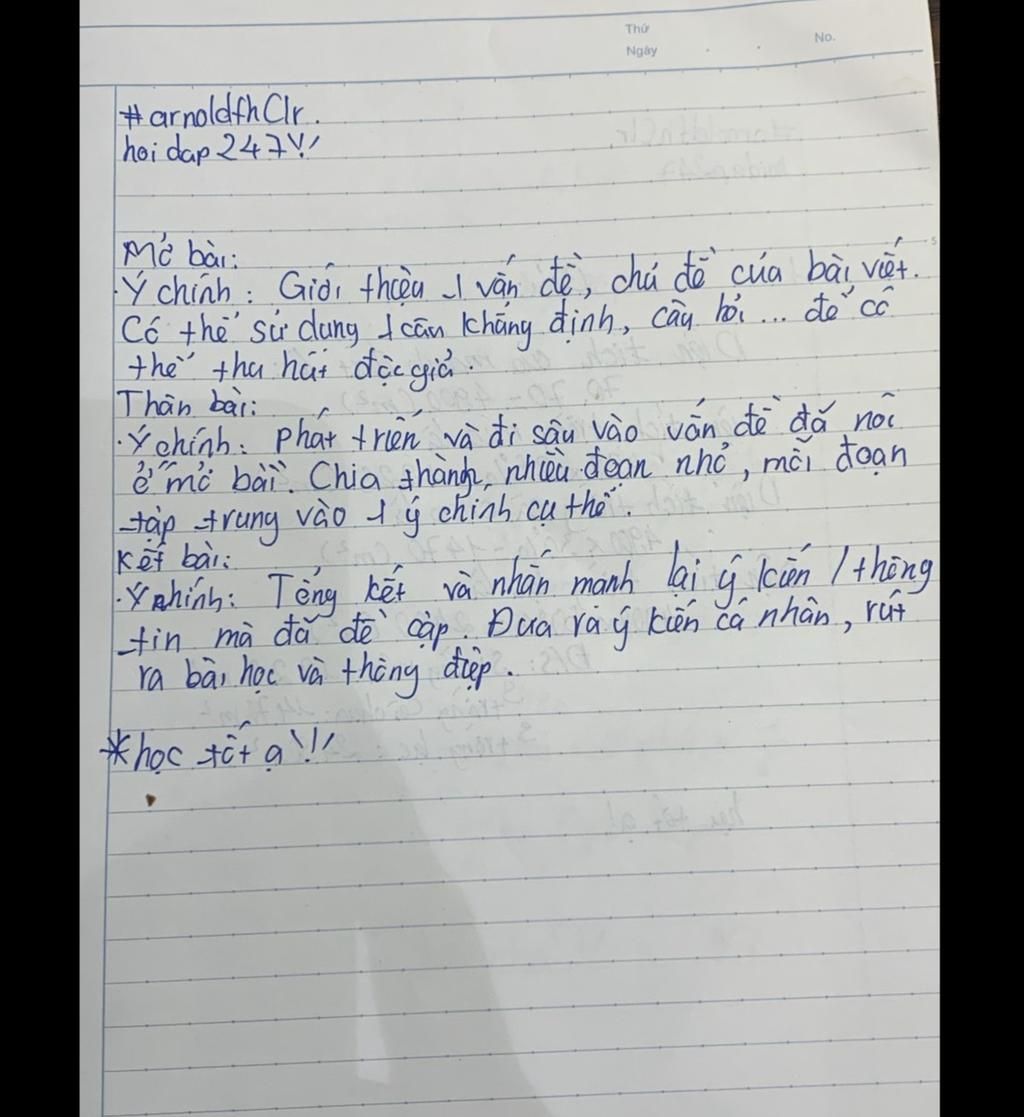 Thứ
Ngày
No.
#arnoldfhClr.
hoi dap 247!!
Mở bài:
. Ý chính: Giới thiệu 1 vấn đề, chủ đề của bài viết.
Có thể sử dụng 1 câu khẳng định, câu hỏi... để có
thể thu hút độc giả.
Thân bài:
. Ý chính: Phát triển và đi sâu vào vấn đề đã nói
ở mở bài. Chia thành nhiều đoạn nhỏ, mỗi đoạn
tập trung vào 1 ý chính cụ thể.
Kết bài:
. Ý chính: Tổng kết và nhấn mạnh lại ý kiến / thông
tin mà đã đề cập. Đưa ra ý kiến cá nhân, rút
ra bài học và thông điệp.
*học tốt ạ!!!